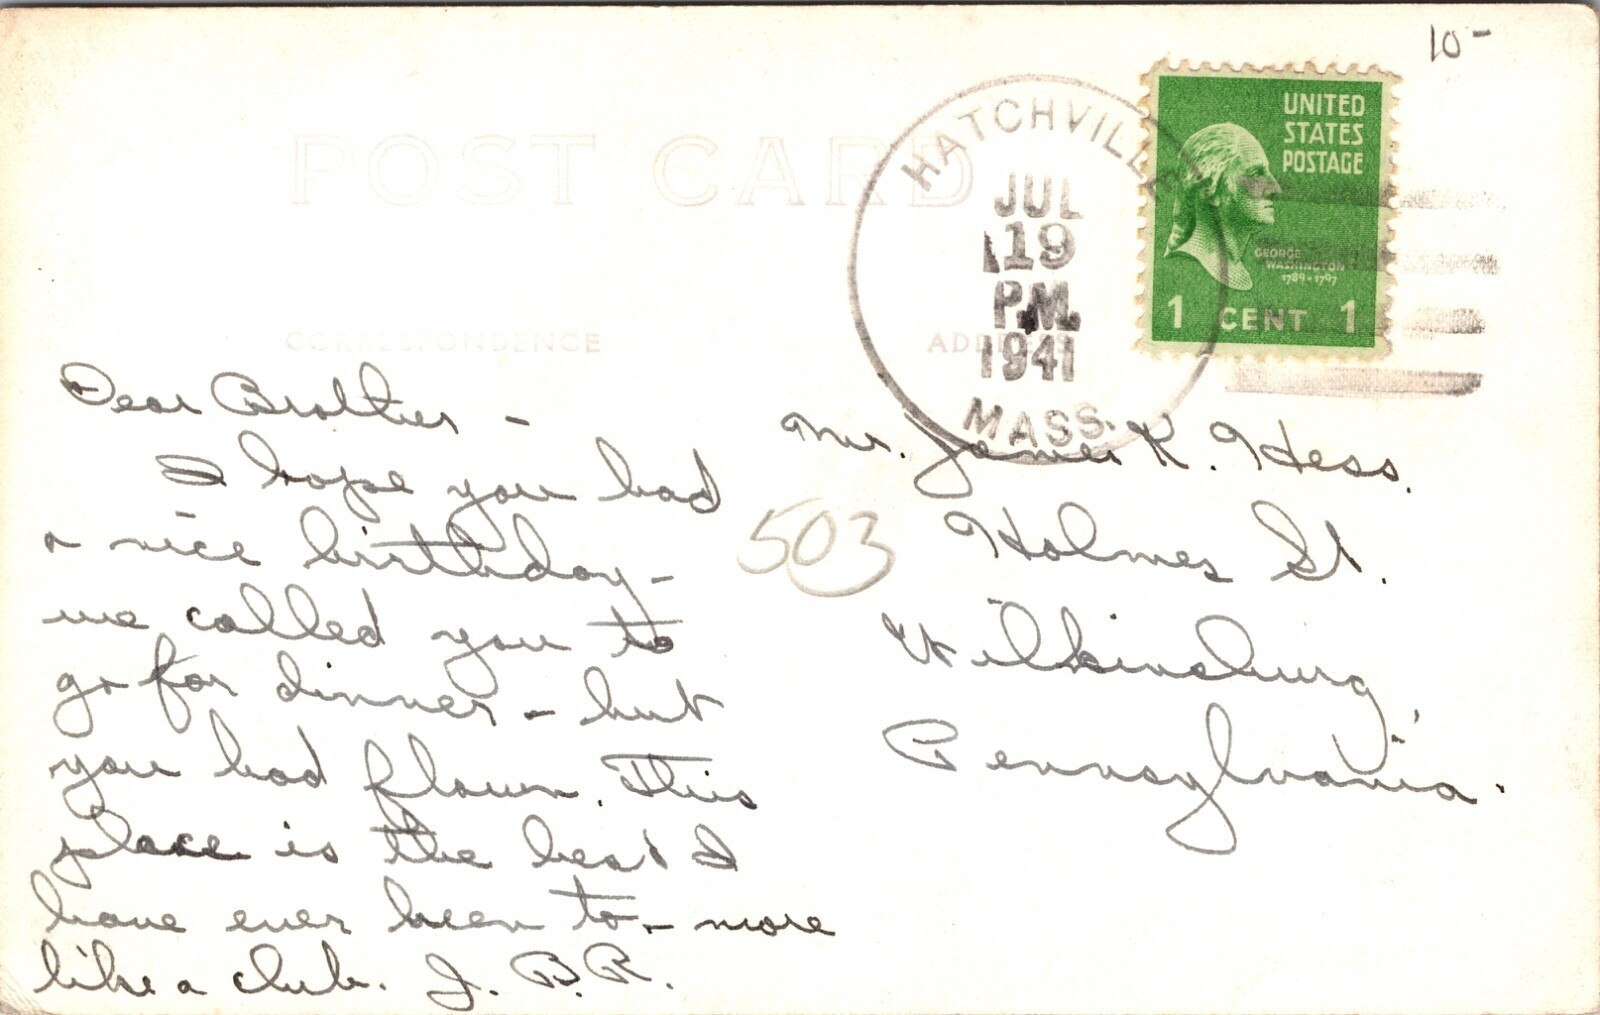 10-
POST CARD
HATCHVILLE
JUL
19
P.M.
1941
MASS.
UNITED
STATES
POSTAGE
GEORGE
WASHINGTON
1789-1797
1 CENT 1
CORRESPONDENCE
ADDRESS
Dear Brother -
I hope you had
a nice birthday -
we called you to
go for dinner - but
you had flown. This
place is the best I
have ever been to - more
like a club. J. B. R.
Mr. James K. Hess.
503 Holmes St.
Wilkinsburg,
Pennsylvania.